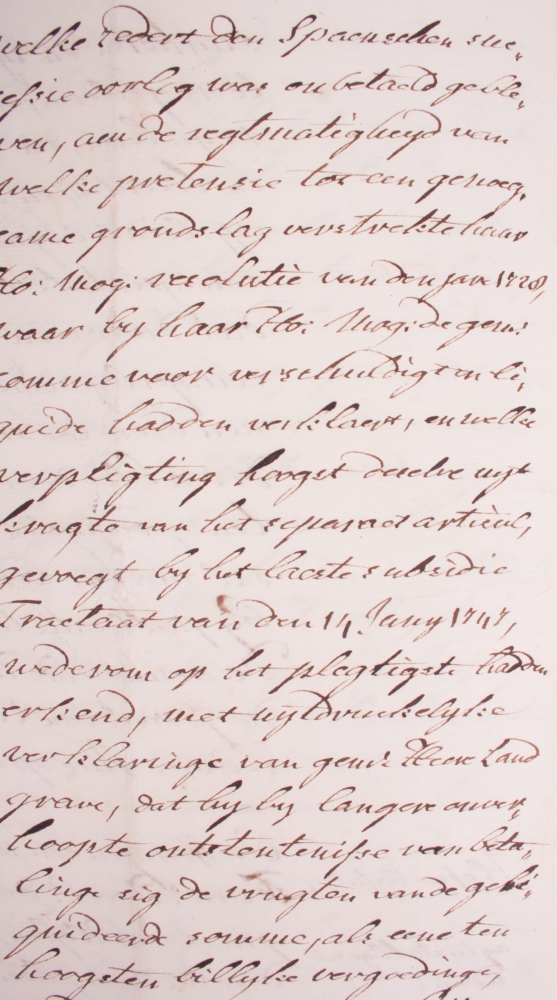 welke zedert den Spaenschen suc„
cessie oorlog was onbetaeld geble„
ven, aen de regtmatigheyd van
welke pretensie tot een genoeg„
same grondslag verstrekte haar
Ho: Mog: resolutie van den jare 1728,
waar by haar Ho: Mog: de gem:
somme voor verschuldigt en li„
quide hadden verklaert, en welke
verpligting hoogst deselve uyt
kragte van het separaet articul,
gevoegt by het laeste subsidie
Tractaat van den 14 Jany 1747,
wederom op het plegtigste hadden
erkend, met uytdruckelyke
verklaringe van gem: Heere Land
grave, dat hy by langere onver„
hoopte ontstentenisse van beta„
linge sig de vrugten van de geli„
quideerde somme, als eene ten
hoogsten billyke vergoedinge,